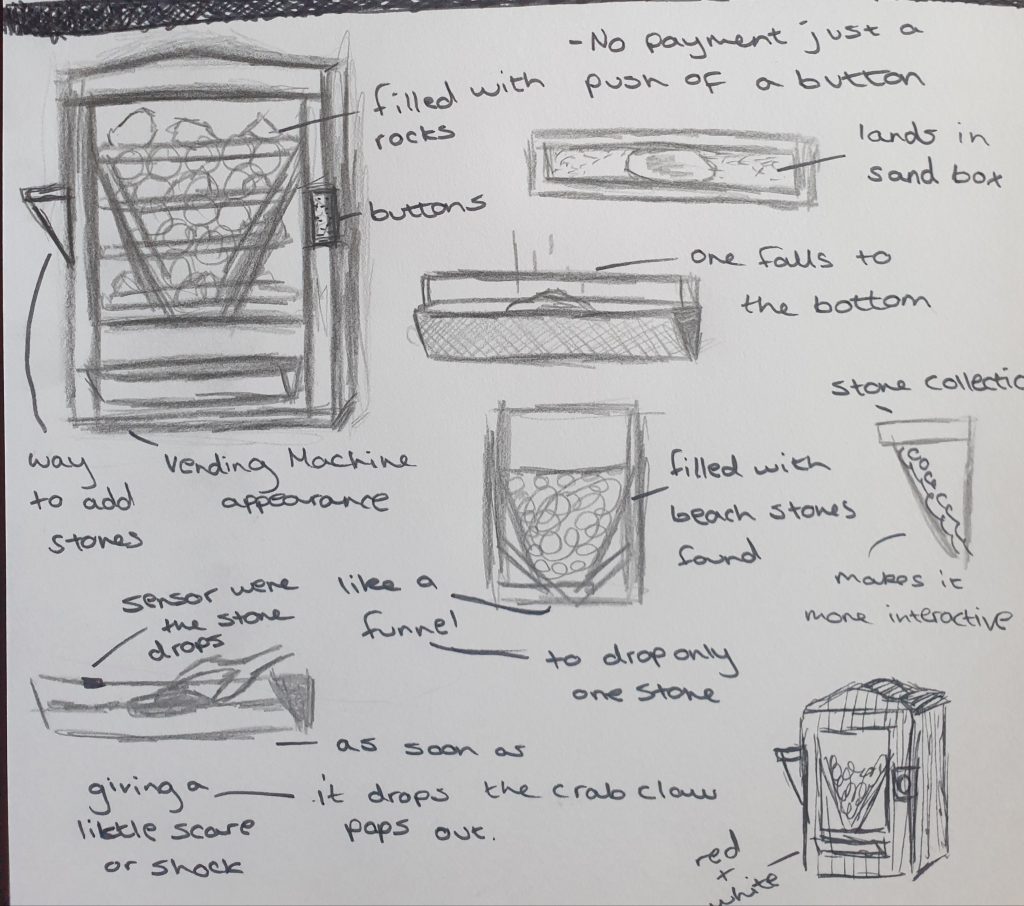 -No payment just a
push of a button
filled with
rocks
buttons
lands in
sand box
one falls to
the bottom
way
to add
stones
vending Machine
appearance
filled with
beach stones
found
stone collectio
makes it
more interactive
like a
funnel
to drop only
one stone
sensor were
the stone
drops
as soon as
it drops the crab claw
pops out.
giving a
little scare
or shock
red
+
white